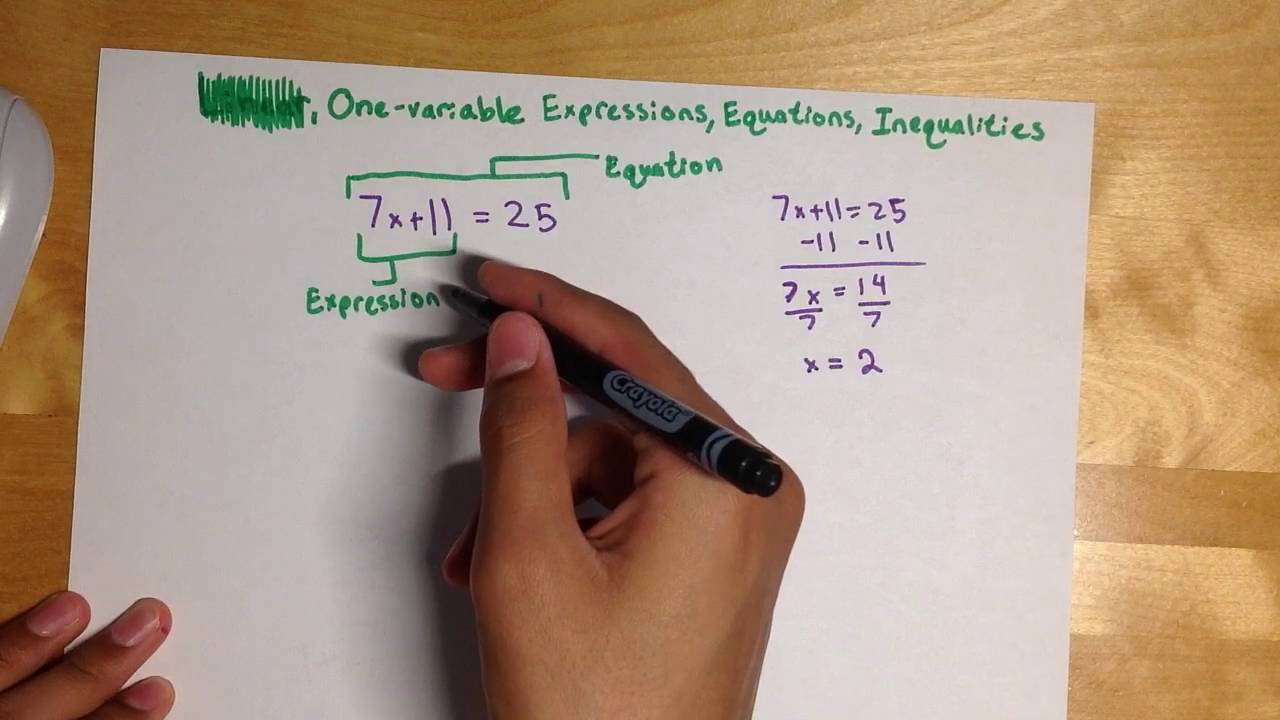 , One-variable Expressions, Equations, Inequalities
Equation
7x+11 = 25
Expression
7x+11=25
-11 -11
7x = 14
7 7
x = 2
Crayola